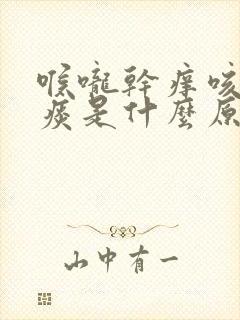 喉嚨幹痒咳
痰是什麼原
山中有一